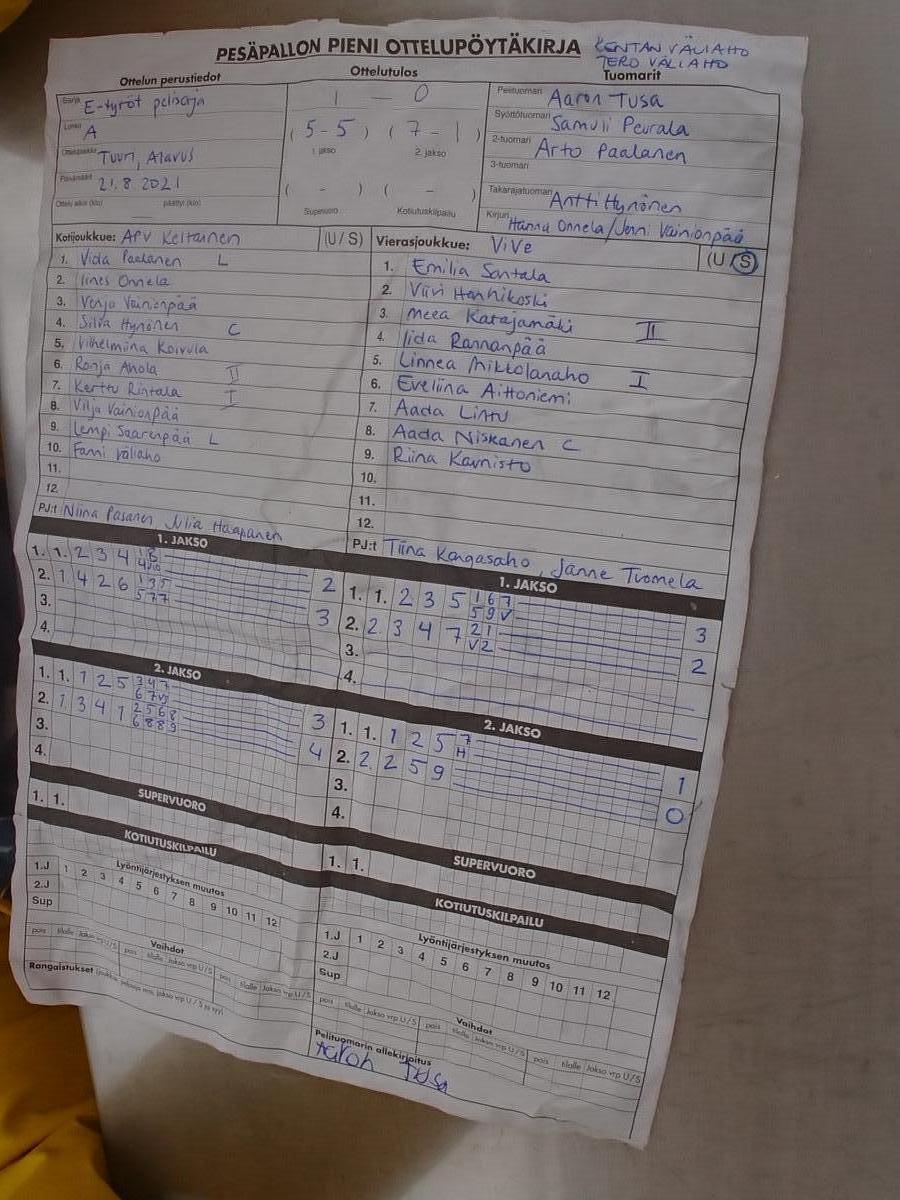 PESÄPALLON PIENI OTTELUPÖYTÄKIRJA
KENTÄN VÄLIAHO
TERO VÄLIAHO
Ottelun perustiedot
Sarja E-tytöt pelisarja
Lohko A
Ottelupaikka Tuuri, Alavus
Päivämäärä 21.8.2021
Ottelu alkoi (klo) päättyi (klo)
Ottelutulos
1 - 0
(5-5) (7-1)
1. jakso 2. jakso
( - ) ( - )
Supervuoro Kotiutuskilpailu
Tuomarit
Pelituomari Aaron Tusa
Syöttötuomari Samuli Peurala
2-tuomari Arto Paalanen
3-tuomari
Takarajatuomari Antti Hynönen
Kirjuri Hanna Onnela/Jenni Vainionpää
Kotijoukkue: APV Keltainen (U / S)
1. Vida Paalanen L
2. Iines Onnela
3. Venja Vainionpää
4. Silva Hynönen C
5. Vilhelmiina Koivula
6. Ronja Ahola II
7. Kerttu Rintala I
8. Vilja Vainionpää
9. Lempi Saarenpää L
10. Fanni Väliaho
11.
12.
PJ:t Niina Pasanen, Julia Haapanen
Vierasjoukkue: ViVe (U / S)
1. Emilia Santala
2. Viivi Hannikoski
3. Meea Katajamäki II
4. Iida Rannanpää
5. Linnea Mikkolanaho I
6. Eveliina Aittoniemi
7. Aada Lintu
8. Aada Niskanen C
9. Riina Kaunisto
10.
11.
12.
PJ:t Tiina Kangasaho, Janne Tuomela
1. JAKSO
1. 1. 2 3 4 2
2. 1 4 2 6 1 3 5 5 7 7 3
3.
4.
1. JAKSO
1. 1. 2 3 5 1 6 7 5 9 V 3
2. 2 3 4 7 2 1 V 2 2
3.
4.
2. JAKSO
1. 1. 1 2 5 3 4 7 3
2. 1 3 4 1 2 5 6 8 6 8 8 9 4
3.
4.
2. JAKSO
1. 1. 1 2 5 7 H 1
2. 2. 2 5 9 0
3.
4.
SUPERVUORO
1. 1.
SUPERVUORO
1. 1.
KOTIUTUSKILPAILU
Lyöntijärjestyksen muutos
1.J 1 2 3 4 5 6 7 8 9 10 11 12
2.J
Sup
Vaihdot
pois tilalle Jakso vrp U / S pois tilalle Jakso vrp U / S pois tilalle Jakso vrp U / S
Rangaistukset
KOTIUTUSKILPAILU
Lyöntijärjestyksen muutos
1.J 1 2 3 4 5 6 7 8 9 10 11 12
2.J
Sup
Vaihdot
pois tilalle Jakso vrp U / S pois tilalle Jakso vrp U / S pois tilalle Jakso vrp U / S
Pelituomarin allekirjoitus
Aaron Tusa